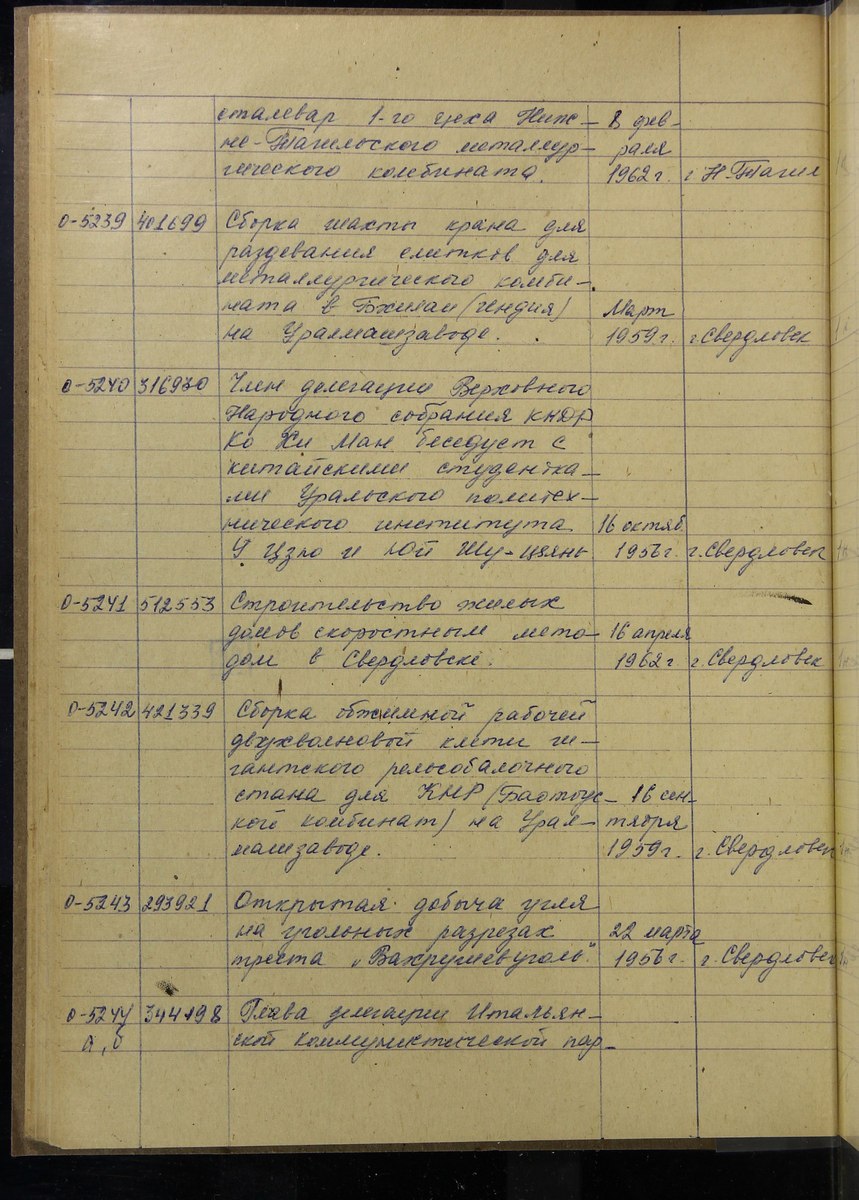 сталевар 1-го цеха Ниж- 8 фев-
не-Тагильского металлур- раля
гического комбината. 1962 г. г. Н-Тагил
0-5239 401699 Сборка шахты крана для
раздевания слитков для
металлургического комби-
ната в Бхилаи (Индия) Март
на Уралмашзаводе. 1959 г. г. Свердловск
0-5240 316930 Член делегации Верховного
Народного собрания КНДР
Ко Хи Ман беседует с
китайскими студентка-
ми Уральского политех-
нического института 16 октяб.
У Цзло и Юй Шу-цзянь 1956 г. г. Свердловск
0-5241 512553 Строительство жилых
домов скоростным мето- 16 апреля
дом в Свердловске. 1962 г г. Свердловск
0-5242 421339 Сборка обжимной рабочей
двухвалковой клети ги-
гантского рельсобалочного
стана для КНР (Баотоус- 16 сен-
кой комбинат) на Урал- тября
машзаводе. 1959 г. г. Свердловск
0-5243 293921 Открытая добыча угля
на угольных разрезах 22 марта
треста "Вахрушевуголь". 1956 г. г. Свердловск
0-5244 344198 Глава делегации Итальян-
а, б ской коммунистической пар-